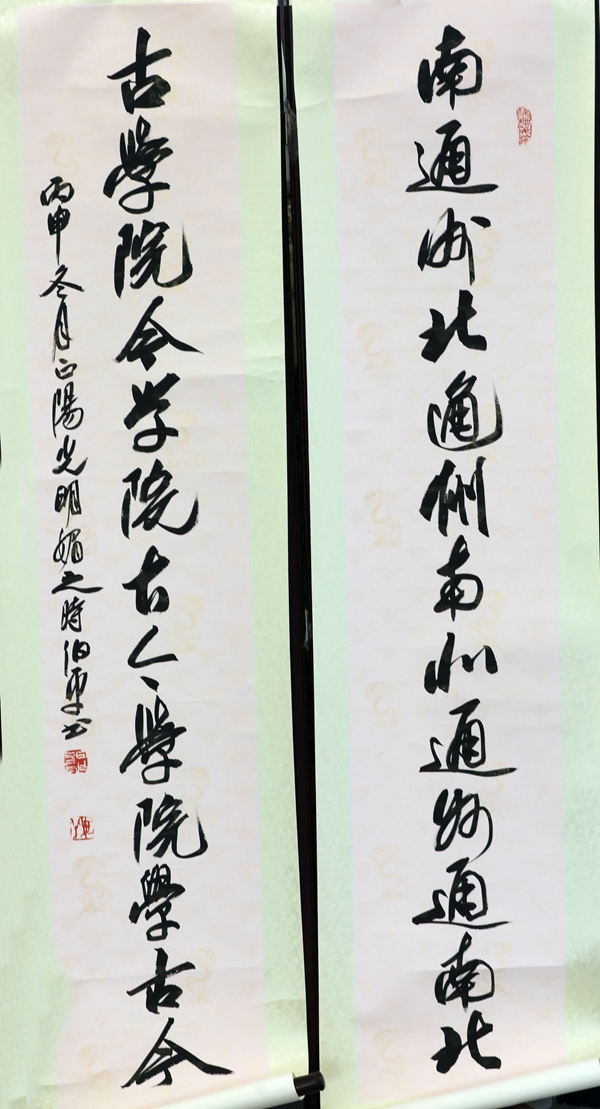 南通州北通州南北通州通南北
古學院今学院古今學院學古今
丙申冬月正陽光明媚之時伯书